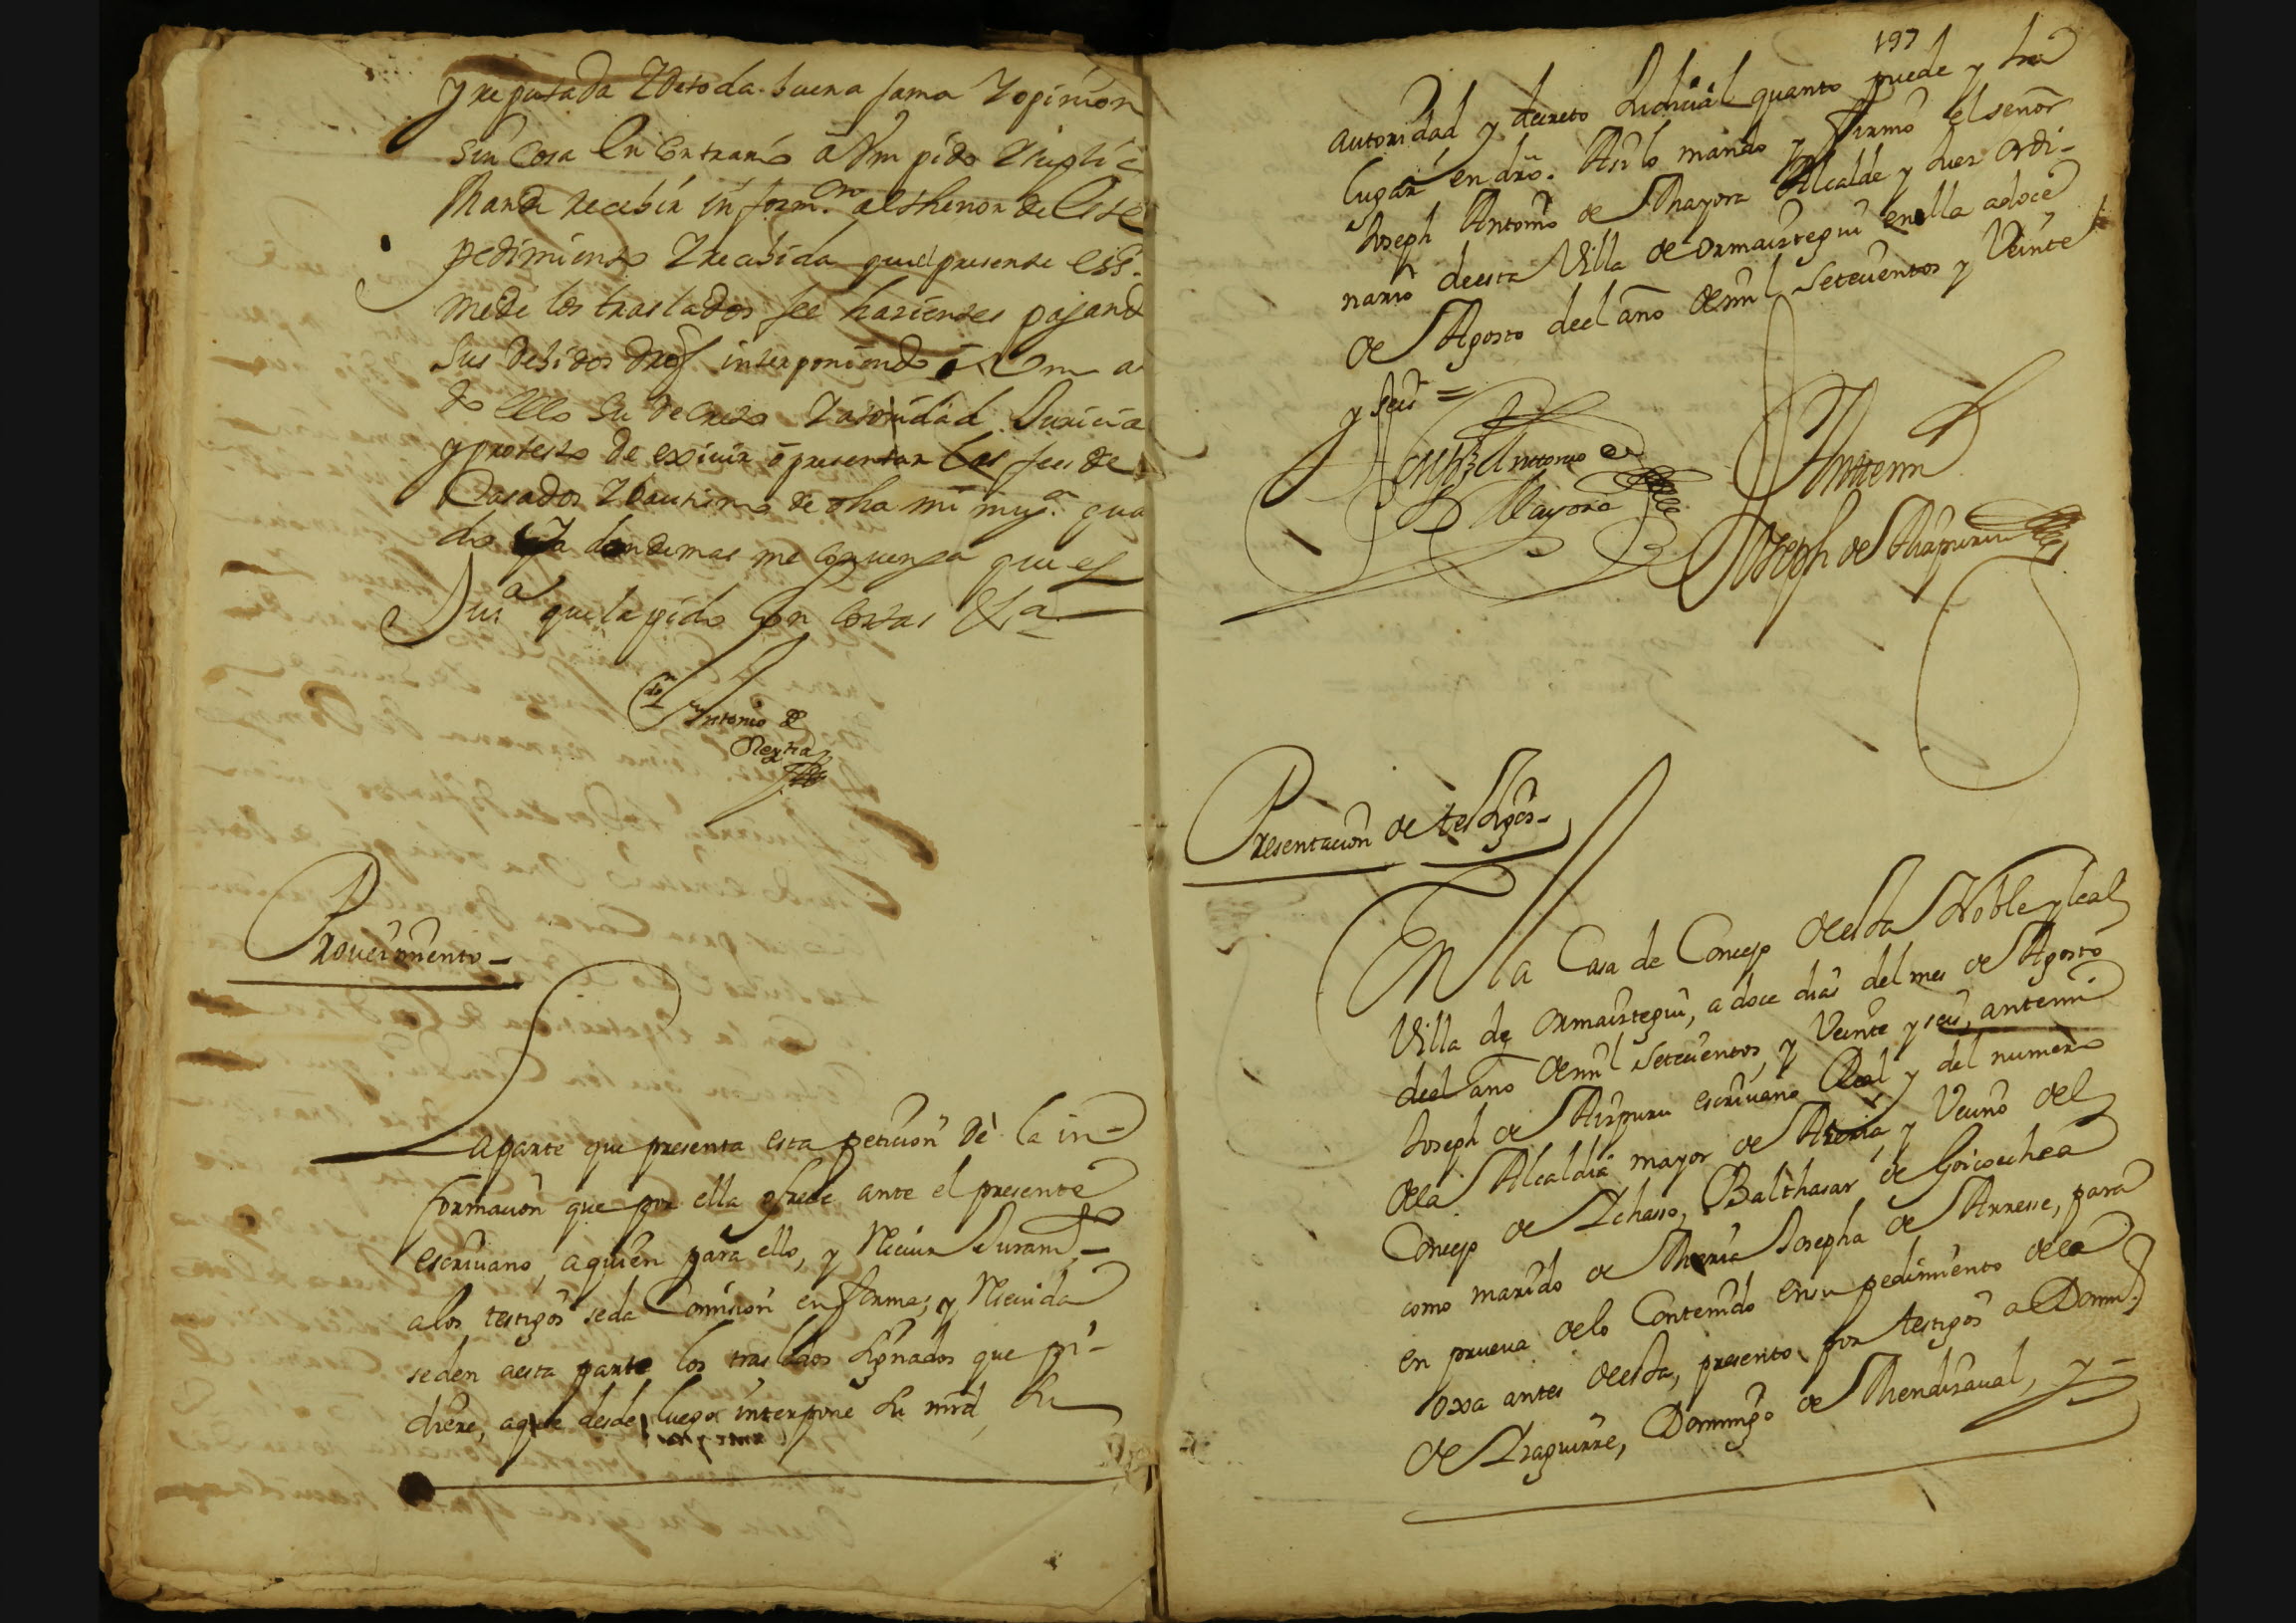 y reputada Y de toda buena fama Y opinion
sin Cosa En Contrario a Vm pido Y supl.co
Mande recebir inform.on al thenor de Este
pedimiento Y recebida que el presente ess.
me de los traslados fee hacientes pagand
sus debidos dros interponiendo Vm a
do ello su decreto Y autoridad Juricia
y protesto de exiuir o presentar las fees de
Casados Y Bautismo de dha mi mug.r qua
do Ya donde mas me conuenga que es
Jus.a que la pido Con Costas &.a
Antonio de
Proueimiento -
La parte que presenta esta peticion dè la in-
formacion que por ella ofrece ante el presente
escriuano, aquien para ello, y Reciuir Juram.to -
alos testigos seda Comision en forma, y Reciuida
seden aesta parte los traslados signados que pi-
diere, aque desde luego interpone su mrd, su
197
autoridad y decreto Judicial quanto puede y ha
lugar en dro. Asi lo mando y firmo el señor
Joseph Antonio de Mayora Alcalde y Juez Ordi-
nario deesta Villa de Ormaiztegui enella adoce
de Agosto deel año demil Setecientos y Veinte
y seis =
Joseph Antonio de
Mayora
Antemi
Joseph de Aizpuru
Presentacion de testigos -
En la Casa de Concejo deesta Noble y leal
Villa de Ormaiztegui, a doce dias del mes de Agosto
deel año demil Setecientos, y Veinte y seis, antemi
Joseph de Aizpuru escriuano Real y del numero
dela Alcaldia mayor de Areria, y Vecino del
Concejo de Ichasso, Balthasar de Goicoechea
como marido de Maria Josepha de Arrese, para
en prueua delo Contenido ensu pedimiento dela
oxa antes deesta, presento por testigos a Domi.s
de Izaguirre, Domingo de Mendizaual, y -